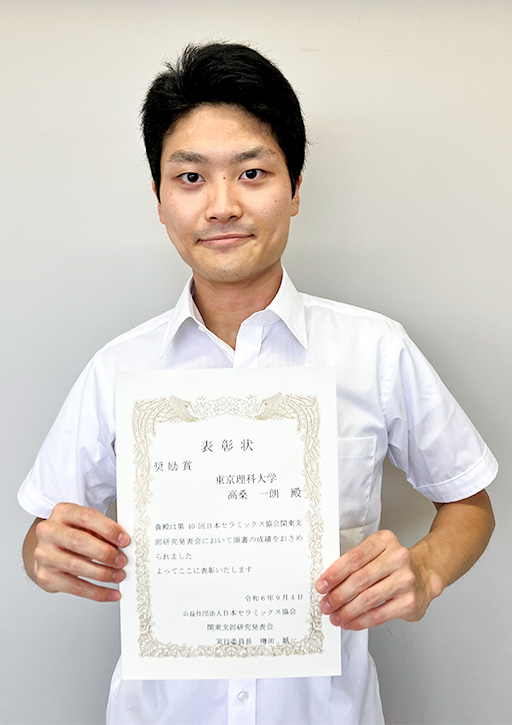 表彰状
奨励賞
東京理科大学
高桑 一朗 殿
貴殿は第40回日本セラミックス協会関東支
部研究発表会において頭書の成績をおさめ
られました
よってここに表彰いたします
令和6年9月4日
公益社団法人日本セラミックス協会
関東支部研究発表会
実行委員長